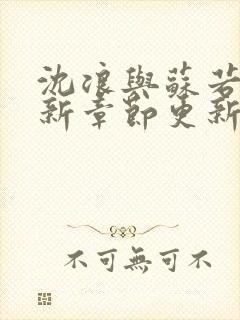 沈浪與蘇若
新章節更新
不可無可不